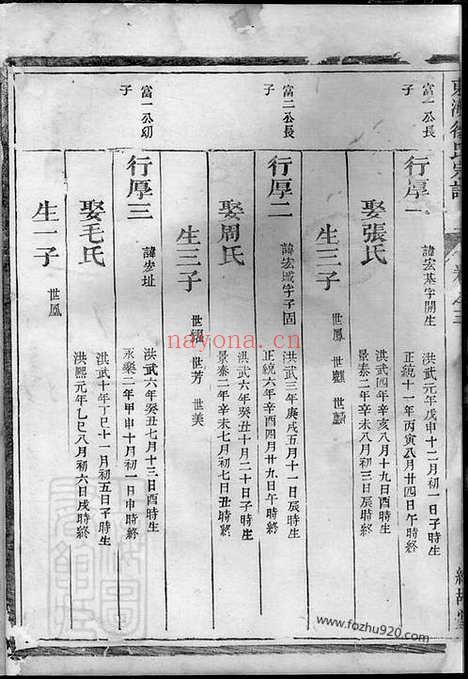 東海徐氏宗譜
卷之三
富一公長
子
行厚一
諱宏基字開生
洪武元年戊申十二月初一日子時生
正統十一年丙寅八月廿四日午時終
娶張氏
洪武四年辛亥八月十九日酉時生
景泰二年辛未八月初三日辰時終
生三子
世鳳
世麒
富二公長
子
行厚二
諱宏域字子固
洪武三年庚戌五月十一日辰時生
正統六年辛酉四月廿九日午時終
娶周氏
洪武六年癸丑十二月二十日子時生
景泰二年辛未七月初七日丑時終
生三子
世芳
世美
富一公幼
子
行厚三
諱宏址
洪武六年癸丑七月十三日酉時生
永樂二年甲申十月初一日申時終
娶毛氏
洪武十年丁巳十一月初五日子時生
洪熙元年乙巳八月初六日戌時終
生一子
世鳳
nayona.cn
www.fozhu920.com